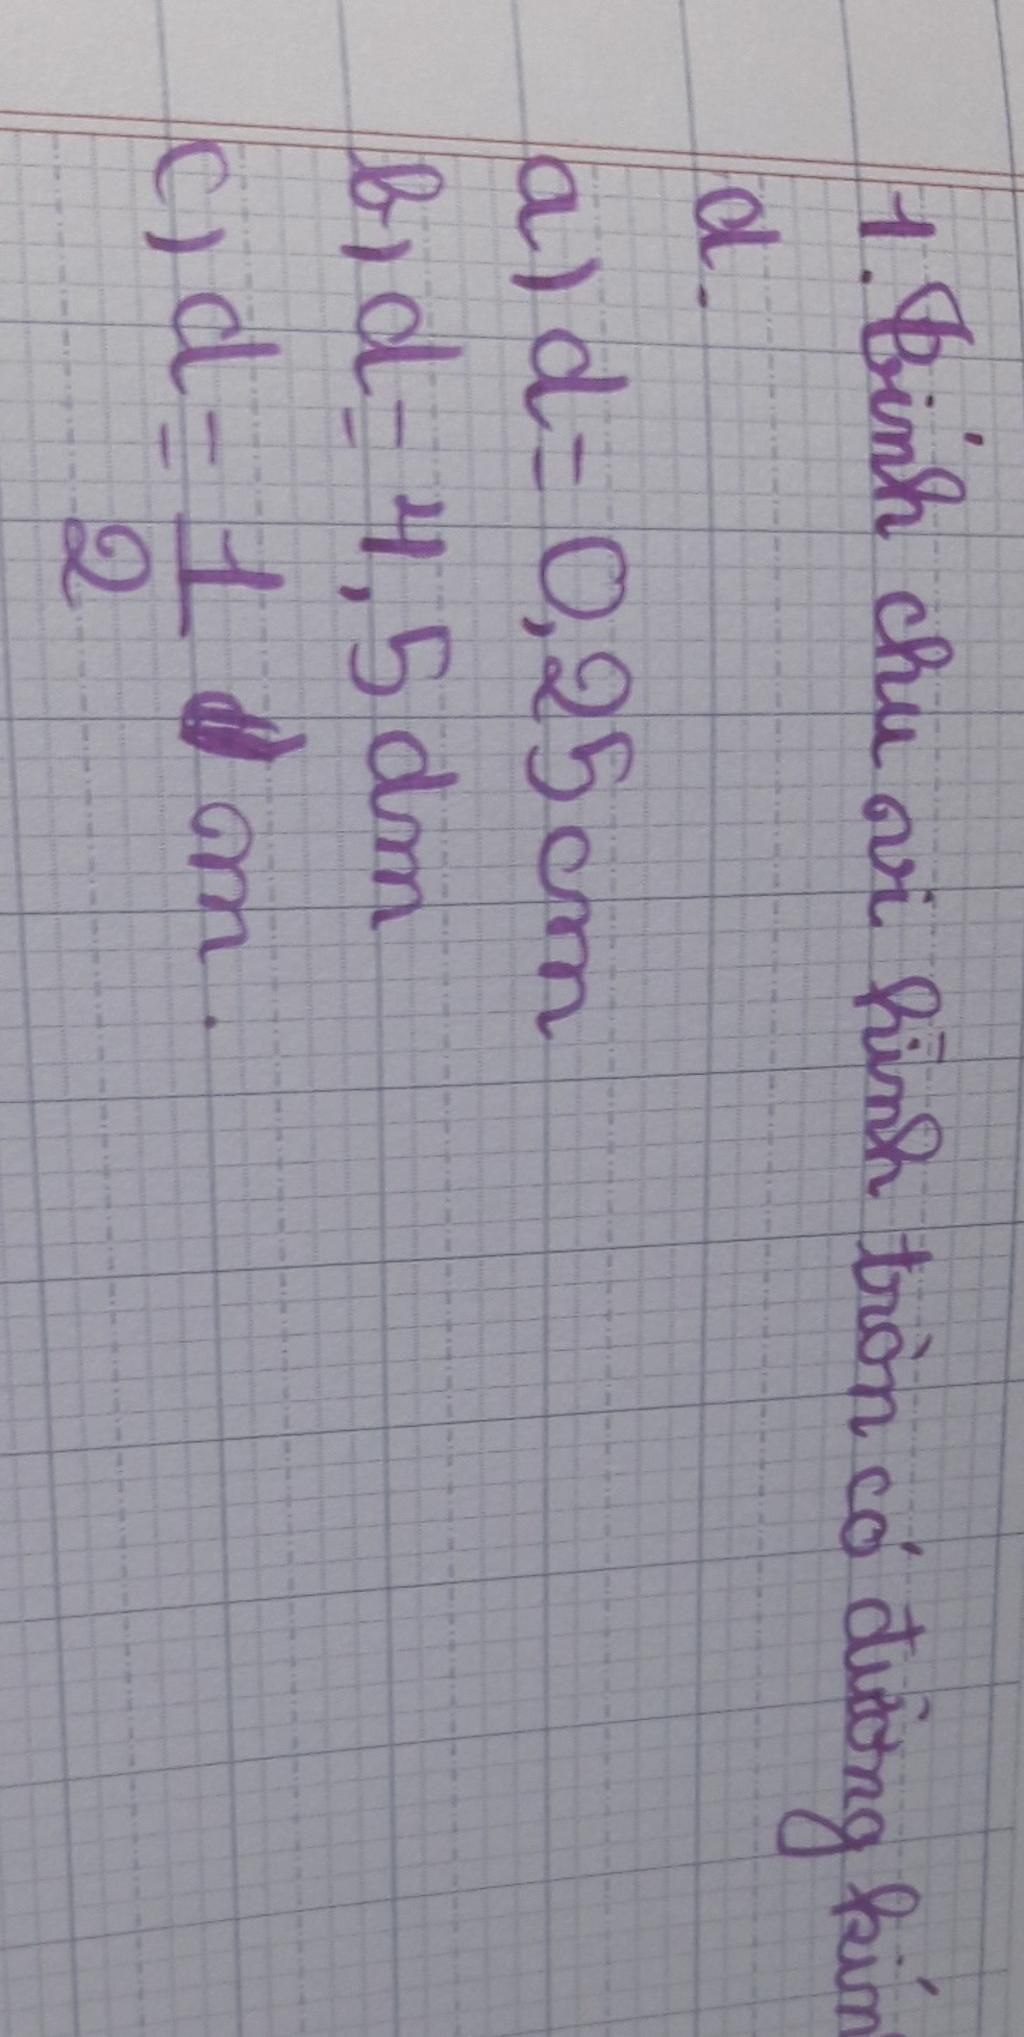 1. Tính chu vi hình tròn có đường kín
d.
a) d = 0,25 cm
b) d = 4,5 dm
c) d = 1/2 m.